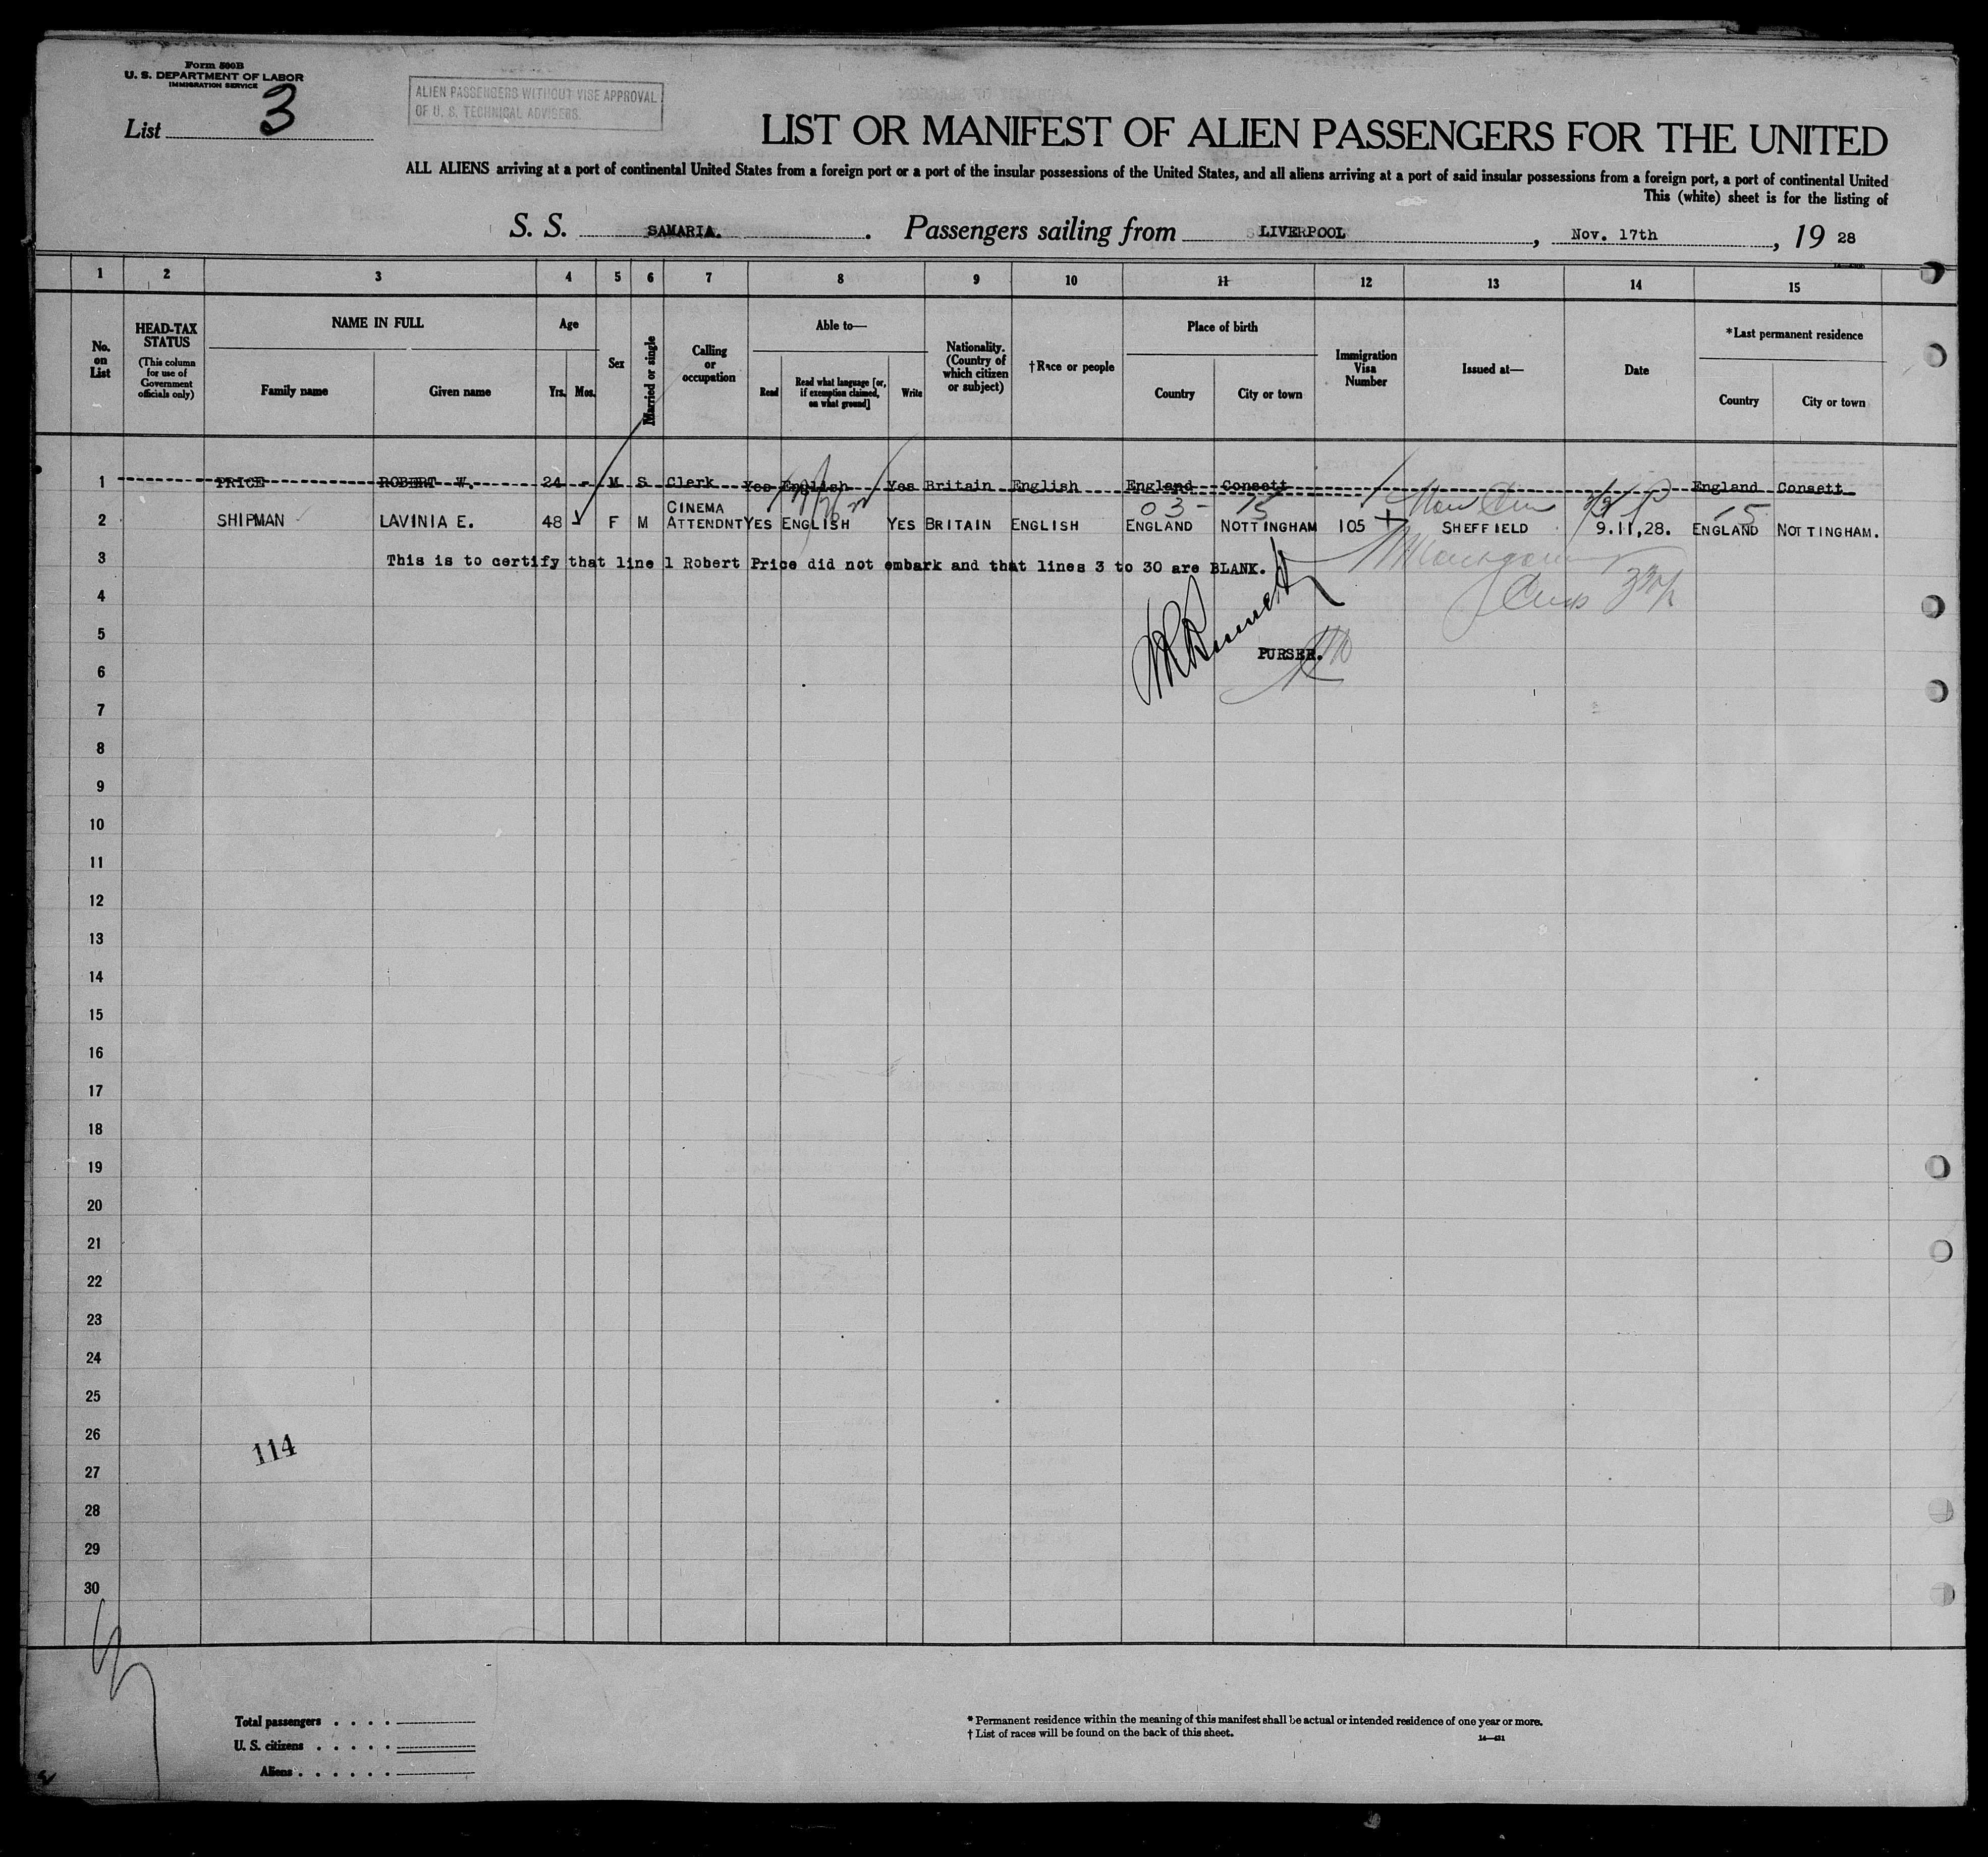 Form 500B
U. S. DEPARTMENT OF LABOR
IMMIGRATION SERVICE
List 3
ALIEN PASSENGERS WITHOUT VISE APPROVAL
OF U. S. TECHNICAL ADVISERS.
LIST OR MANIFEST OF ALIEN PASSENGERS FOR THE UNITED
ALL ALIENS arriving at a port of continental United States from a foreign port or a port of the insular possessions of the United States, and all aliens arriving at a port of said insular possessions from a foreign port, a port of continental United
This (white) sheet is for the listing of
S. S. SAMARIA. Passengers sailing from LIVERPOOL, Nov. 17th, 19 28
1 2 3 4 5 6 7 8 9 10 11 12 13 14 15
No. on List
HEAD-TAX STATUS
(This column for use of Government officials only)
NAME IN FULL
Family name Given name
Age
Yrs. Mos.
Sex
Married or single
Calling or occupation
Able to—
Read
Read what language [or, if exemption claimed, on what ground]
Write
Nationality. (Country of which citizen or subject)
†Race or people
Place of birth
Country City or town
Immigration Visa Number
Issued at—
Date
*Last permanent residence
Country City or town
1 PRICE ROBERT W. 24 - M S Clerk Yes English Yes Britain English England Consett England Consett
03- 15 15
2 SHIPMAN LAVINIA E. 48 F M CINEMA ATTENDNT YES ENGLISH YES BRITAIN ENGLISH ENGLAND NOTTINGHAM 105 SHEFFIELD 9.11,28. ENGLAND NOTTINGHAM.
3 This is to certify that line 1 Robert Price did not embark and that lines 3 to 30 are BLANK.
4
5
PURSER.
6
7
8
9
10
11
12
13
14
15
16
17
18
19
20
21
22
23
24
25
26
114
27
28
29
30
Total passengers . . . .
U. S. citizens . . . . .
Aliens . . . . . .
* Permanent residence within the meaning of this manifest shall be actual or intended residence of one year or more.
† List of races will be found on the back of this sheet.
14—431